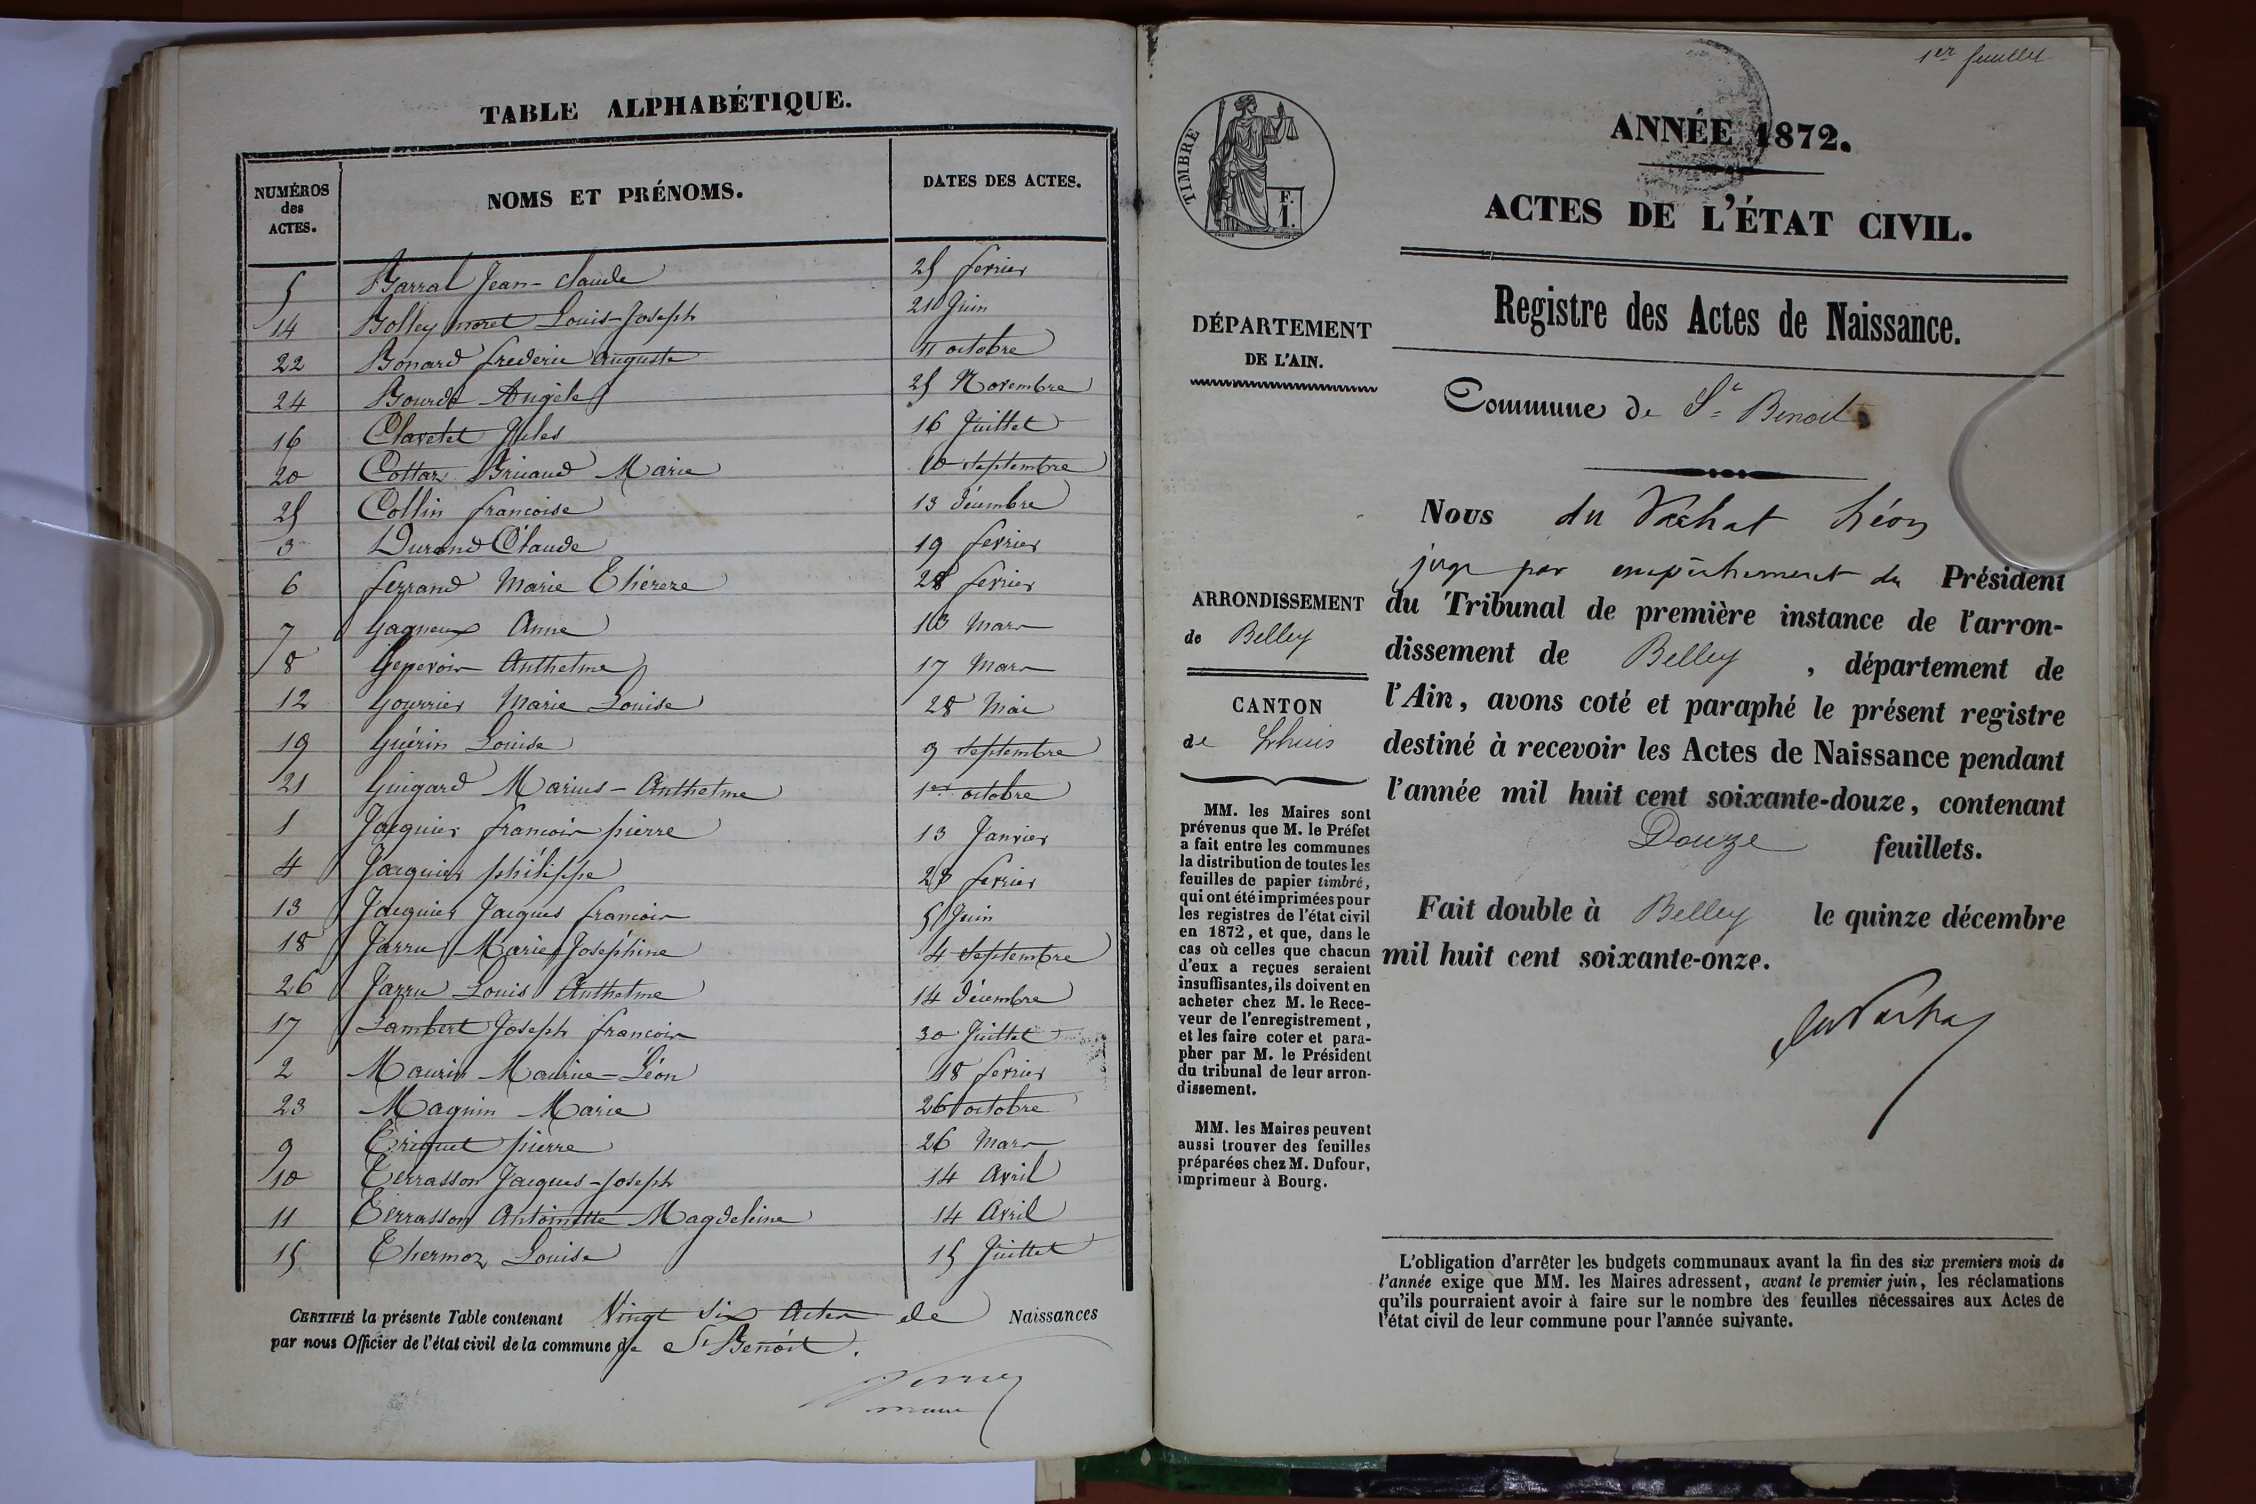 TABLE ALPHABÉTIQUE.
NUMÉROS des ACTES. NOMS ET PRÉNOMS. DATES DES ACTES.
5 Barral Jean-Claude 25 fevrier
14 Bolley moret Louis-Joseph 21 Juin
22 Bonard frederic auguste 11 octobre
24 Bourde Angèle 25 Novembre
16 Clavelet Jules 16 Juillet
20 Cottaz Briaud Marie 10 septembre
25 Collin francoise 13 décembre
3 Durand Claude 19 fevrier
6 ferrand Marie Thèreze 28 fevrier
7 Gagneux Anne 13 Mars
8 Genevois Anthelme 17 Mars
12 Gourrier Marie Louise 28 Mai
19 Guérin Louise 9 septembre
21 Guigard Marius-Anthelme 1er octobre
1 Jacquier francois pierre 13 Janvier
4 Jacquier philippe 28 fevrier
13 Jacquier Jacques francois 5 Juin
18 Jarru Marie Joséphine 4 Septembre
26 Jarru Louis Anthelme 14 décembre
17 Lambert Joseph francois 30 Juillet
2 Maurin Maurice-Léon 18 fevrier
23 Magnin Marie 26 octobre
9 Criquet pierre 26 Mars
10 Terrasson Jacques-Joseph 14 Avril
11 Terrasson Antoinette Magdeleine 14 Avril
15 Thermoz Louise 15 Juillet
CERTIFIÉ la présente Table contenant Vingt Six Actes de Naissances
par nous Officier de l'état civil de la commune de St Benoit.
maire
1er feuillet
TIMBRE
F. 1.
ANNÉE 1872.
ACTES DE L'ÉTAT CIVIL.
Registre des Actes de Naissance.
Commune de St Benoit
DÉPARTEMENT
DE L'AIN.
ARRONDISSEMENT
de Belley
CANTON
de Lhuis
MM. les Maires sont
prévenus que M. le Préfet
a fait entre les communes
la distribution de toutes les
feuilles de papier timbré,
qui ont été imprimées pour
les registres de l'état civil
en 1872, et que, dans le
cas où celles que chacun
d'eux a reçues seraient
insuffisantes, ils doivent en
acheter chez M. le Rece-
veur de l'enregistrement,
et les faire coter et para-
pher par M. le Président
du tribunal de leur arron-
dissement.
MM. les Maires peuvent
aussi trouver des feuilles
préparées chez M. Dufour,
imprimeur à Bourg.
Nous du Vachat Léon
juge par empêchement du Président
du Tribunal de première instance de l'arron-
dissement de Belley, département de
l'Ain, avons coté et paraphé le présent registre
destiné à recevoir les Actes de Naissance pendant
l'année mil huit cent soixante-douze, contenant
Douze feuillets.
Fait double à Belley le quinze décembre
mil huit cent soixante-onze.
du Vachat
L'obligation d'arrêter les budgets communaux avant la fin des six premiers mois de
l'année exige que MM. les Maires adressent, avant le premier juin, les réclamations
qu'ils pourraient avoir à faire sur le nombre des feuilles nécessaires aux Actes de
l'état civil de leur commune pour l'année suivante.